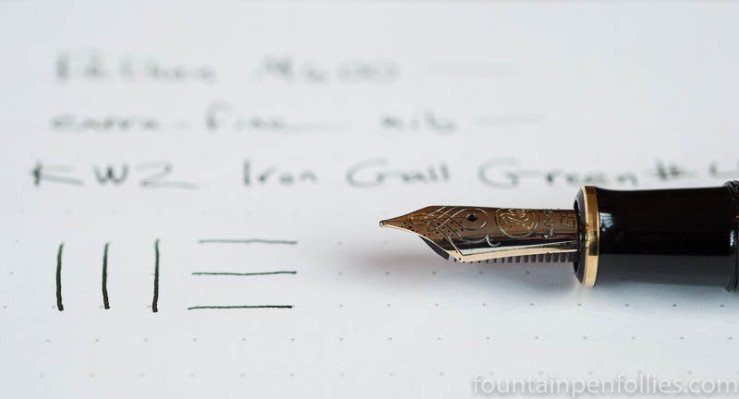 Pelikan M600 —
extra-fine nib —
KWZ Iron Gall Green #4
fountainpenfollies.com